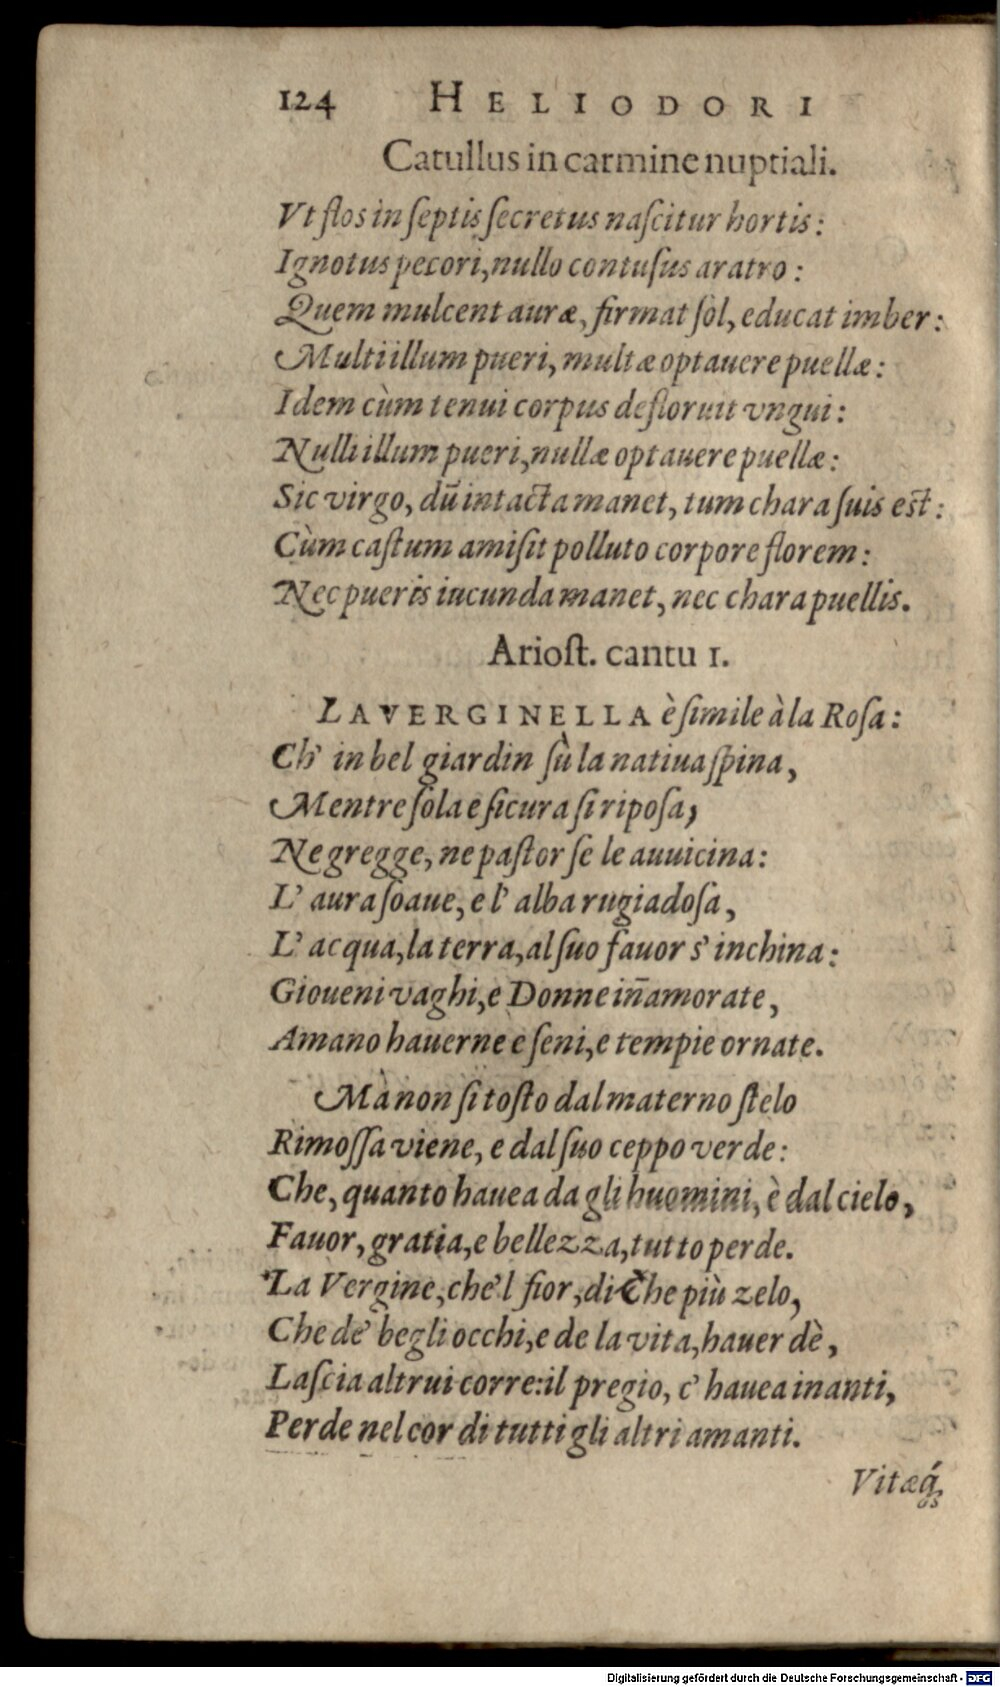 124 HELIODORI
Catullus in carmine nuptiali.
Vt flos in ſeptis ſecretus naſcitur hortis:
Ignotus pecori, nullo contuſus aratro:
Quem mulcent auræ, firmat ſol, educat imber:
Multi illum pueri, multæ optauere puellæ:
Idem cùm tenui corpus defloruit vngui:
Nulli illum pueri, nullæ optauere puellæ:
Sic virgo, dũ intacta manet, tum chara ſuis eſt:
Cùm caſtum amiſit polluto corpore florem:
Nec pueris iucunda manet, nec chara puellis.
Arioſt. cantu 1.
LA VERGINELLA è ſimile à la Roſa:
Ch' in bel giardin ſù la natiua ſpina,
Mentre ſola e ſicura ſi ripoſa,
Ne gregge, ne paſtor ſe le auuicina:
L' aura ſoaue, e l' alba rugiadoſa,
L' acqua, la terra, al ſuo fauor s' inchina:
Gioueni vaghi, e Donne in̄amorate,
Amano hauerne e ſeni, e tempie ornate.
Mà non ſi toſto dal materno ſtelo
Rimoſſa viene, e dal ſuo ceppo verde:
Che, quanto hauea da gli huomini, è dal cielo,
Fauor, gratia, e bellezza, tutto perde.
La Vergine, che'l fior, di Che più zelo,
Che de' begli occhi, e de la vita, hauer dè,
Laſcia altrui corre: il pregio, c' hauea inanti,
Perde nel cor di tutti gli altri amanti.
Vitæq́;
os
Digitalisierung gefördert durch die Deutsche Forschungsgemeinschaft - DFG